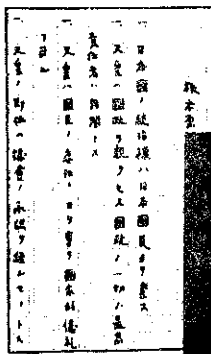 根本
一、日本國ノ統治權ハ日本國民ヨリ發ス
一、天皇ハ國政ヲ親ラセス國政ノ一切ノ最高
責任者ハ内閣トス
一、天皇ハ國民ノ委任ニヨリ專ラ國家的儀礼
ヲ司ル
一、天皇ノ即位ハ議會ノ承認ヲ經ルモノトス